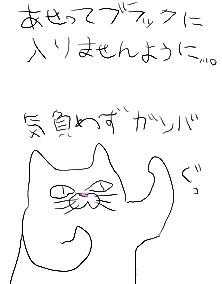 あせってブラックに
入りませんように…。
気負わずガンバ
ぐっ